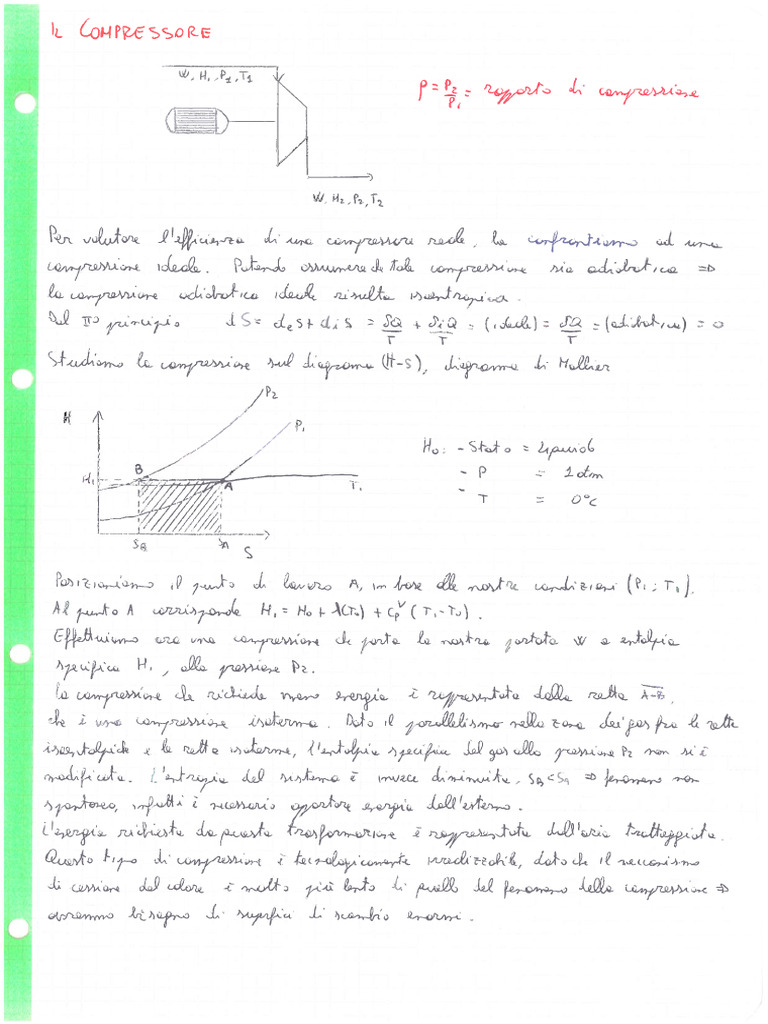 IL COMPRESSORE
W, H1, P1, T1
ρ = P2/P1 = rapporto di compressione
W, H2, P2, T2
Per valutare l'efficienza di una compressore reale, la confrontiamo ad una
compressione ideale. Potendo assumere che tale compressione sia adiabatica ⇒
la compressione adiabatica ideale risulta isoentropica.
Dal II° principio dS = deS + diS = δQ/T + δiQ/T = (ideale) = δQ/T = (adiabatica) = 0
Studiamo la compressione sul diagramma (H-S), diagramma di Mollier
P2
H
P1
H0: - Stato = liquido
B
H1
A
T1
- P = 1 atm
- T = 0°C
SB
SA
S
Posizioniamo il punto di lavoro A, in base alle nostre condizioni (P1; T1).
Al punto A corrisponde H1 = H0 + λ(T0) + CpV (T1 - T0).
Effettuiamo ora una compressione che porta la nostra portata W a entalpia
specifica H1, alla pressione P2.
La compressione che richiede meno energia è rappresentata dalla retta A-B,
che è una compressione isoterma. Dato il parallelismo nella zona dei gas fra le rette
isoentalpiche e la retta isoterme, l'entalpia specifica del gas alla pressione P2 non si è
modificata. L'entropia del sistema è invece diminuita, SB < SA ⇒ fenomeno non
spontaneo, infatti è necessario apportare energia dall'esterno.
L'energia richiesta da questa trasformazione è rappresentata dall'aria tratteggiata.
Questo tipo di compressione è tecnologicamente irrealizzabile, dato che il meccanismo
di cessione del calore è molto più lento di quello del fenomeno della compressione ⇒
avremmo bisogno di superfici di scambio enormi.